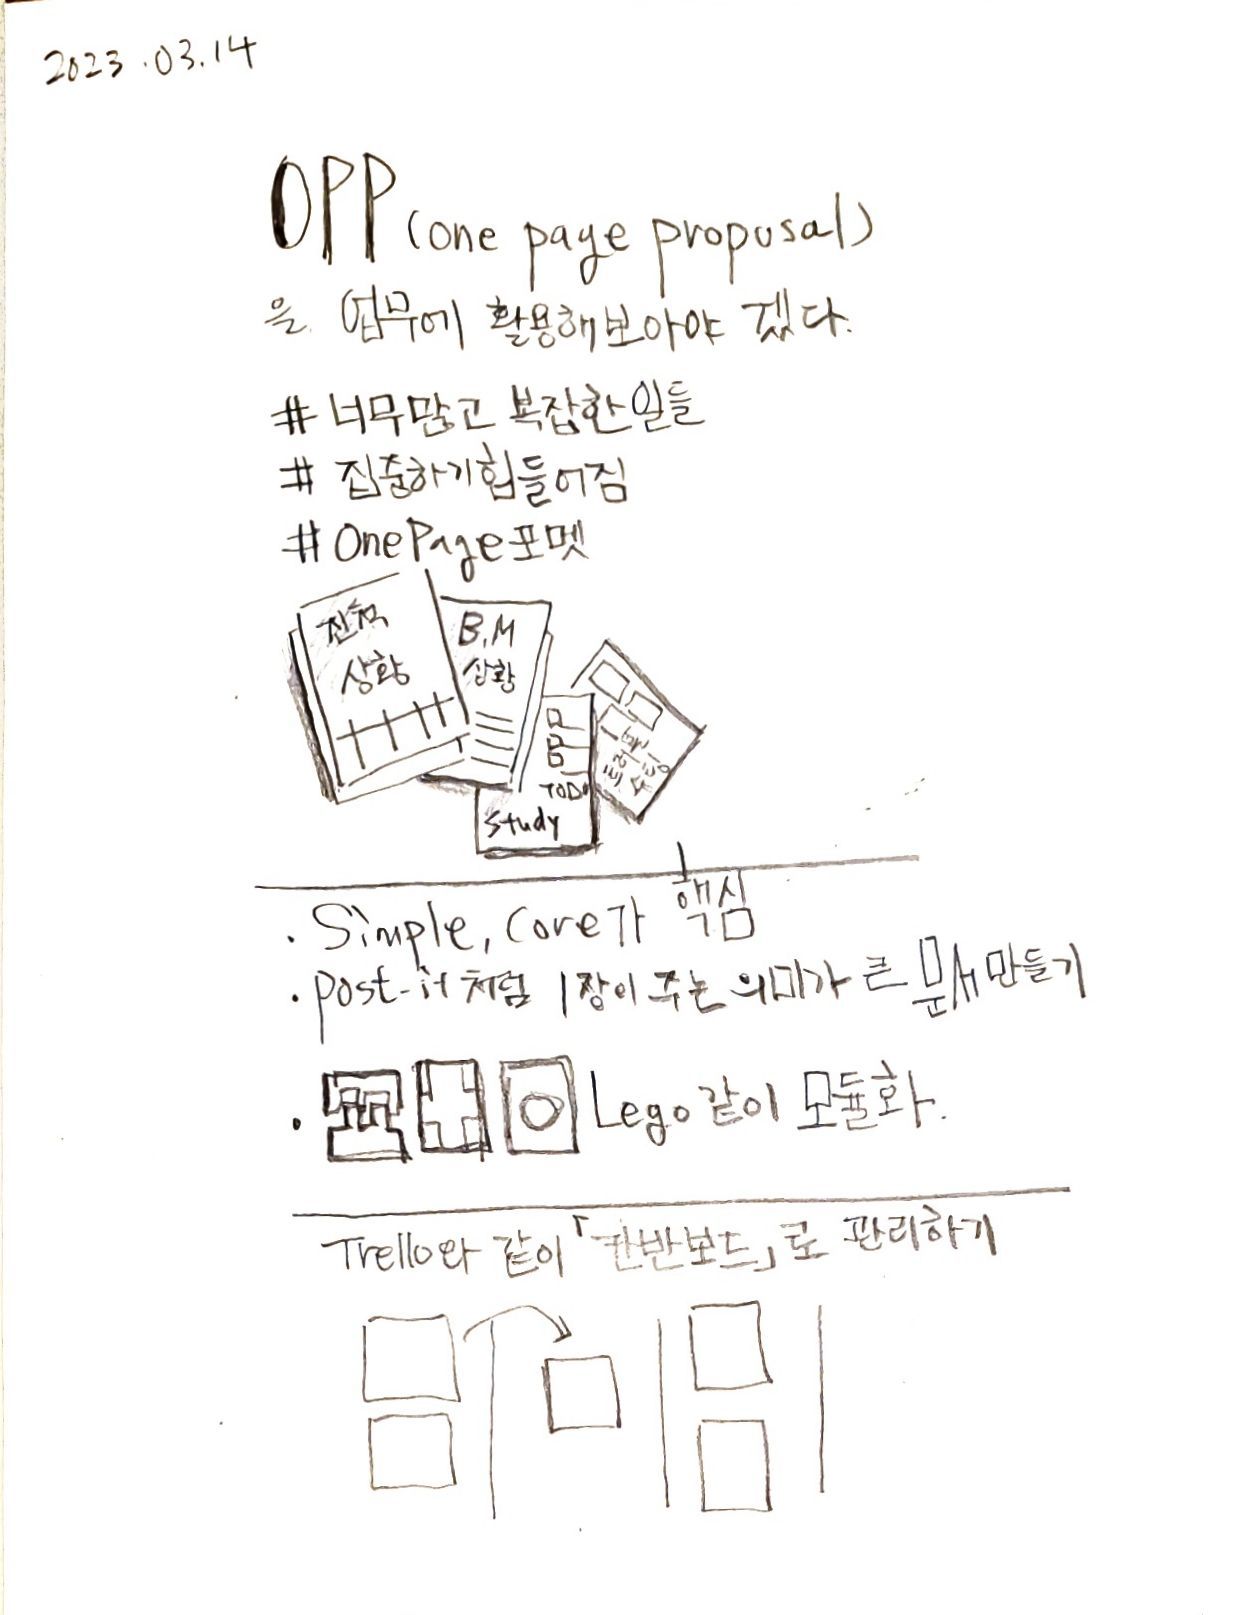 2023.03.14
OPP (one page proposal)
을 업무에 활용해보아야 겠다.
# 너무많고 복잡한일들
# 집중하기힘들어짐
# OnePage포멧
진척
상황
B.M
상황
TODO
Study
· Simple, Core가 핵심
· post-it처럼 1장이 주는 의미가 큰 문서만들기
· Lego같이 모듈화.
Trello와 같이 「칸반보드」로 관리하기